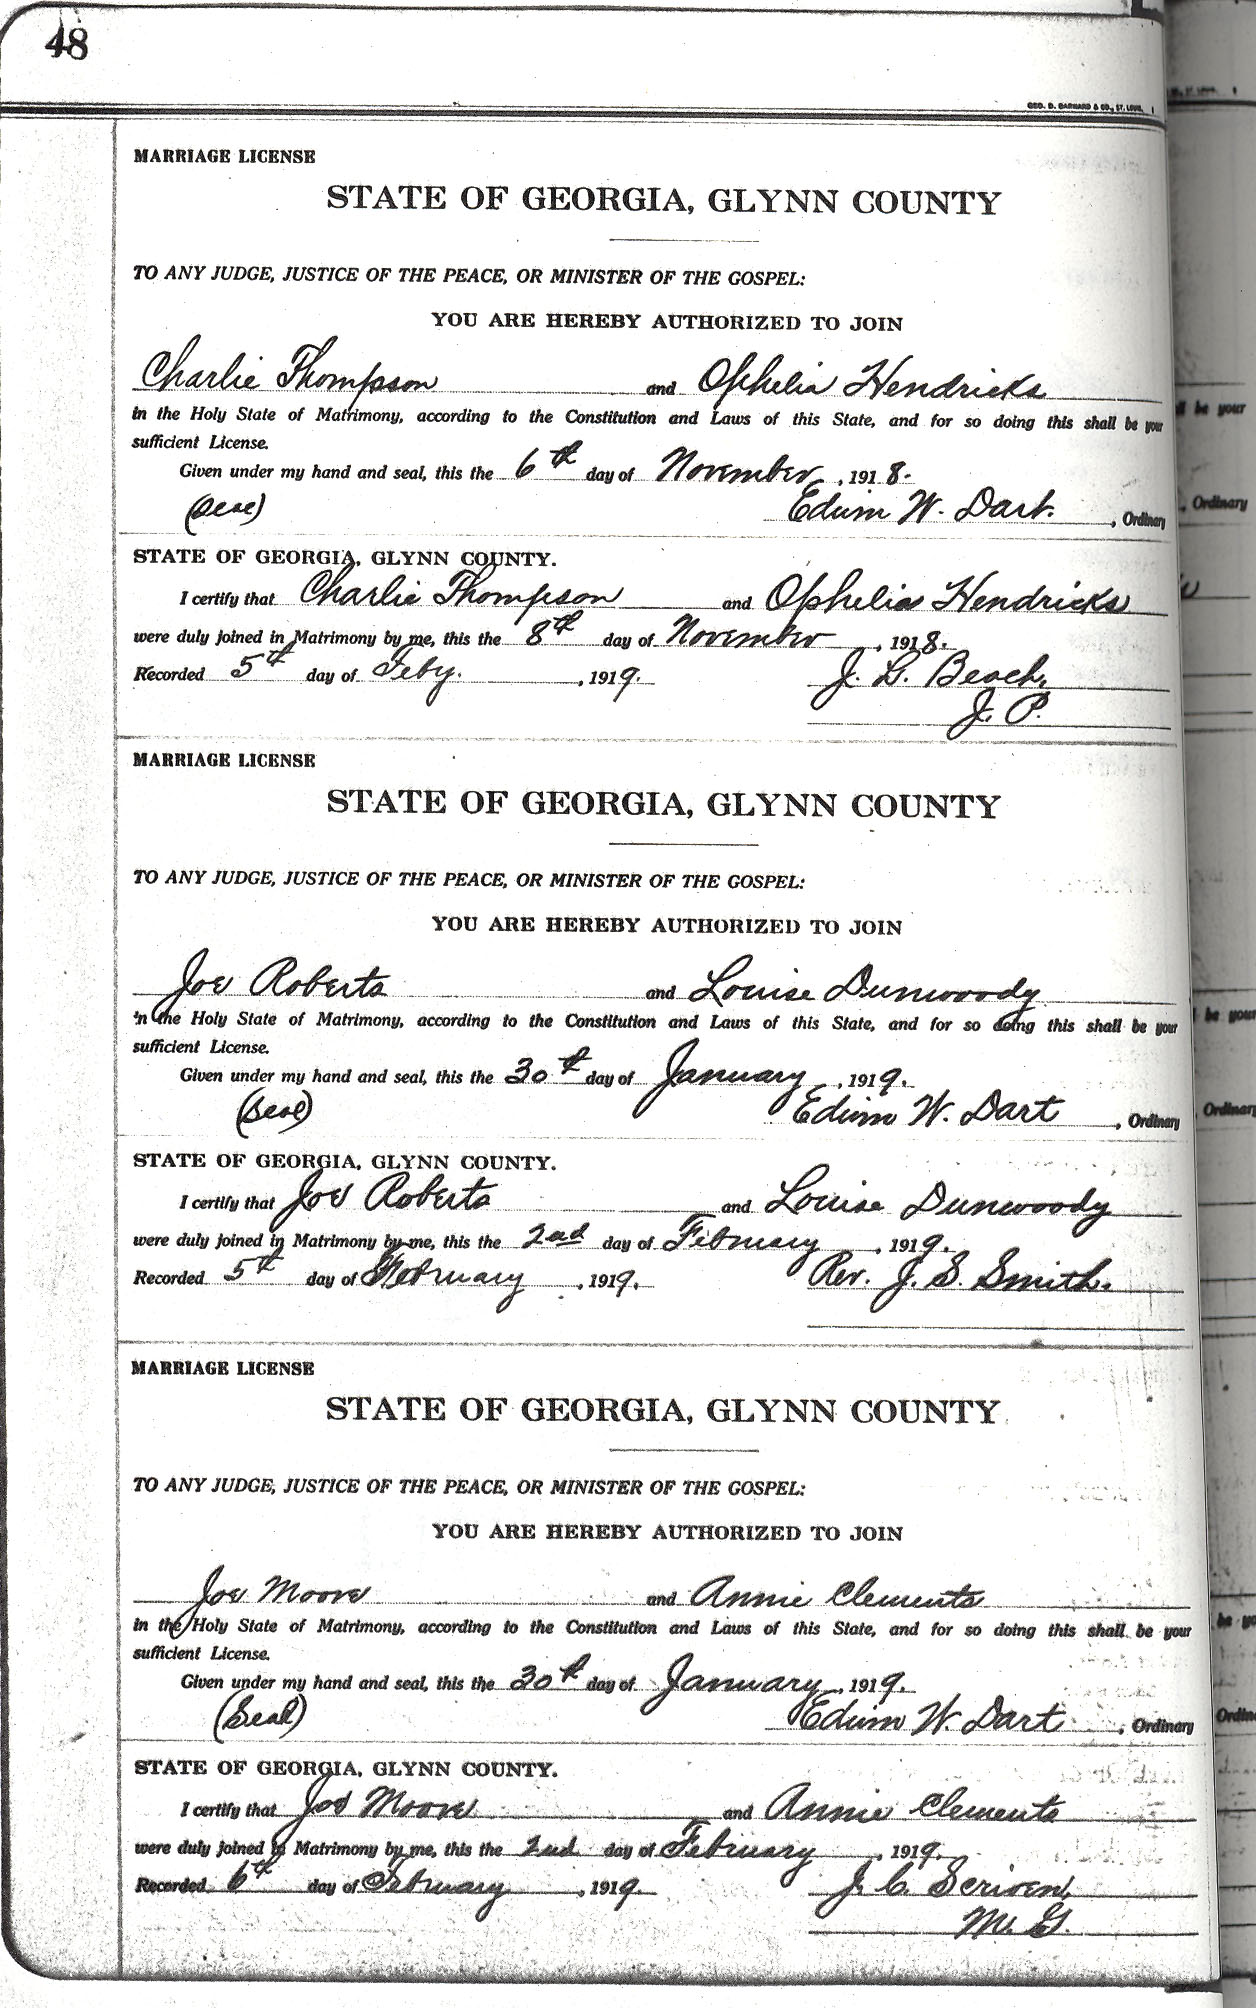 48
GEO. D. BARNARD & CO., ST. LOUIS.
MARRIAGE LICENSE
STATE OF GEORGIA, GLYNN COUNTY
TO ANY JUDGE, JUSTICE OF THE PEACE, OR MINISTER OF THE GOSPEL:
YOU ARE HEREBY AUTHORIZED TO JOIN
Charlie Thompson and Ophelia Hendricks
in the Holy State of Matrimony, according to the Constitution and Laws of this State, and for so doing this shall be your
sufficient License.
Given under my hand and seal, this the 6th day of November, 1918.
(Seal) Edwin W. Dart. , Ordinary
STATE OF GEORGIA, GLYNN COUNTY.
I certify that Charlie Thompson and Ophelia Hendricks
were duly joined in Matrimony by me, this the 8th day of November, 1918.
Recorded 5th day of Feby. , 1919. J. G. Beach,
J. P.
MARRIAGE LICENSE
STATE OF GEORGIA, GLYNN COUNTY
TO ANY JUDGE, JUSTICE OF THE PEACE, OR MINISTER OF THE GOSPEL:
YOU ARE HEREBY AUTHORIZED TO JOIN
Joe Roberts and Louise Dunwoody
in the Holy State of Matrimony, according to the Constitution and Laws of this State, and for so doing this shall be your
sufficient License.
Given under my hand and seal, this the 30th day of January, 1919.
(Seal) Edwin W. Dart , Ordinary
STATE OF GEORGIA, GLYNN COUNTY.
I certify that Joe Roberts and Louise Dunwoody
were duly joined in Matrimony by me, this the 2nd day of February, 1919.
Recorded 5th day of February, 1919. Rev. J. S. Smith.
MARRIAGE LICENSE
STATE OF GEORGIA, GLYNN COUNTY
TO ANY JUDGE, JUSTICE OF THE PEACE, OR MINISTER OF THE GOSPEL:
YOU ARE HEREBY AUTHORIZED TO JOIN
Joe Moore and Annie Clements
in the Holy State of Matrimony, according to the Constitution and Laws of this State, and for so doing this shall be your
sufficient License.
Given under my hand and seal, this the 30th day of January, 1919.
(Seal) Edwin W. Dart , Ordinary
STATE OF GEORGIA, GLYNN COUNTY.
I certify that Joe Moore and Annie Clements
were duly joined in Matrimony by me, this the 2nd day of February, 1919.
Recorded 6th day of February, 1919. J. C. Scriven,
M. G.
be your
, Ordinary
be your
, Ordinary
be yo
Ordin